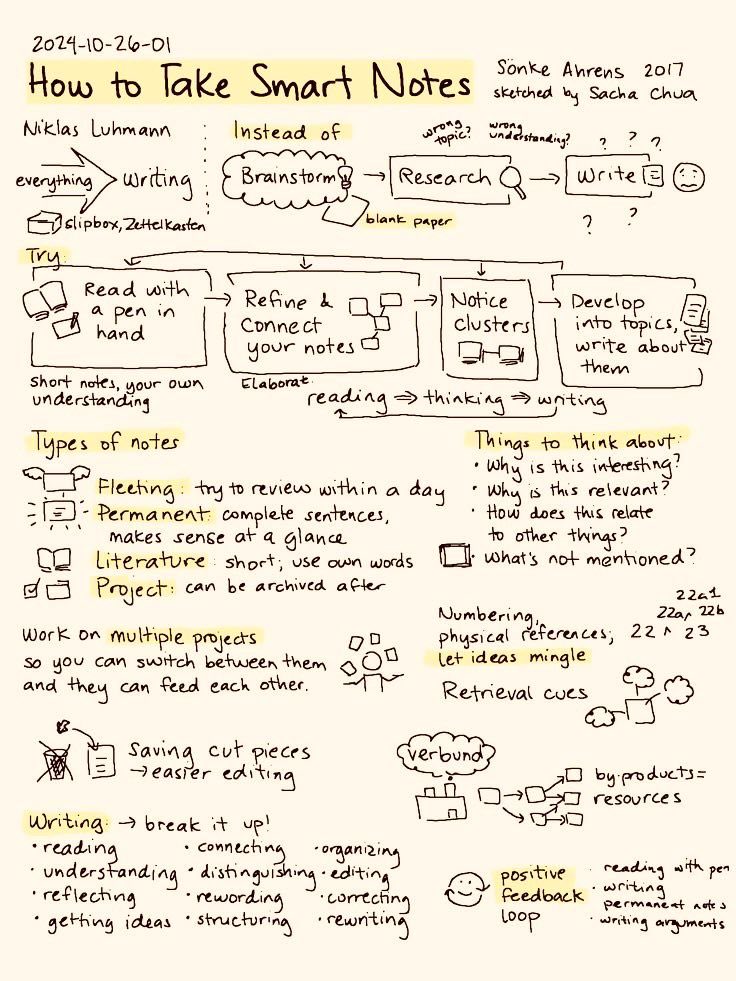 2024-10-26-01
How to Take Smart Notes
Sönke Ahrens 2017
sketched by Sacha Chua
Niklas Luhmann
everything
writing
slipbox, Zettelkasten
Instead of
Brainstorm
blank paper
wrong
topic?
Research
wrong
understanding?
? ? ?
Write
? ?
Try:
Read with
a pen in
hand
short notes, your own
understanding
Refine &
Connect
your notes
Elaborat
Notice
clusters
Develop
into topics,
write about
them
reading ⇒ thinking ⇒ writing
Types of notes
Fleeting: try to review within a day
Permanent: complete sentences,
makes sense at a glance
Literature: short, use own words
Project: can be archived after
Things to think about:
• Why is this interesting?
• Why is this relevant?
• How does this relate
to other things?
• What's not mentioned?
Work on multiple projects
so you can switch between them
and they can feed each other.
22a1
22a, 22b
Numbering,
physical references; 22 ^ 23
let ideas mingle
Retrieval cues
Saving cut pieces
→ easier editing
verbund
by-products =
resources
Writing: → break it up!
• reading
• understanding
• reflecting
• getting ideas
• connecting
• distinguishing
• rewording
• structuring
• organizing
• editing
• correcting
• rewriting
positive
feedback
loop
• reading with pen
• writing
permanent notes
• writing arguments